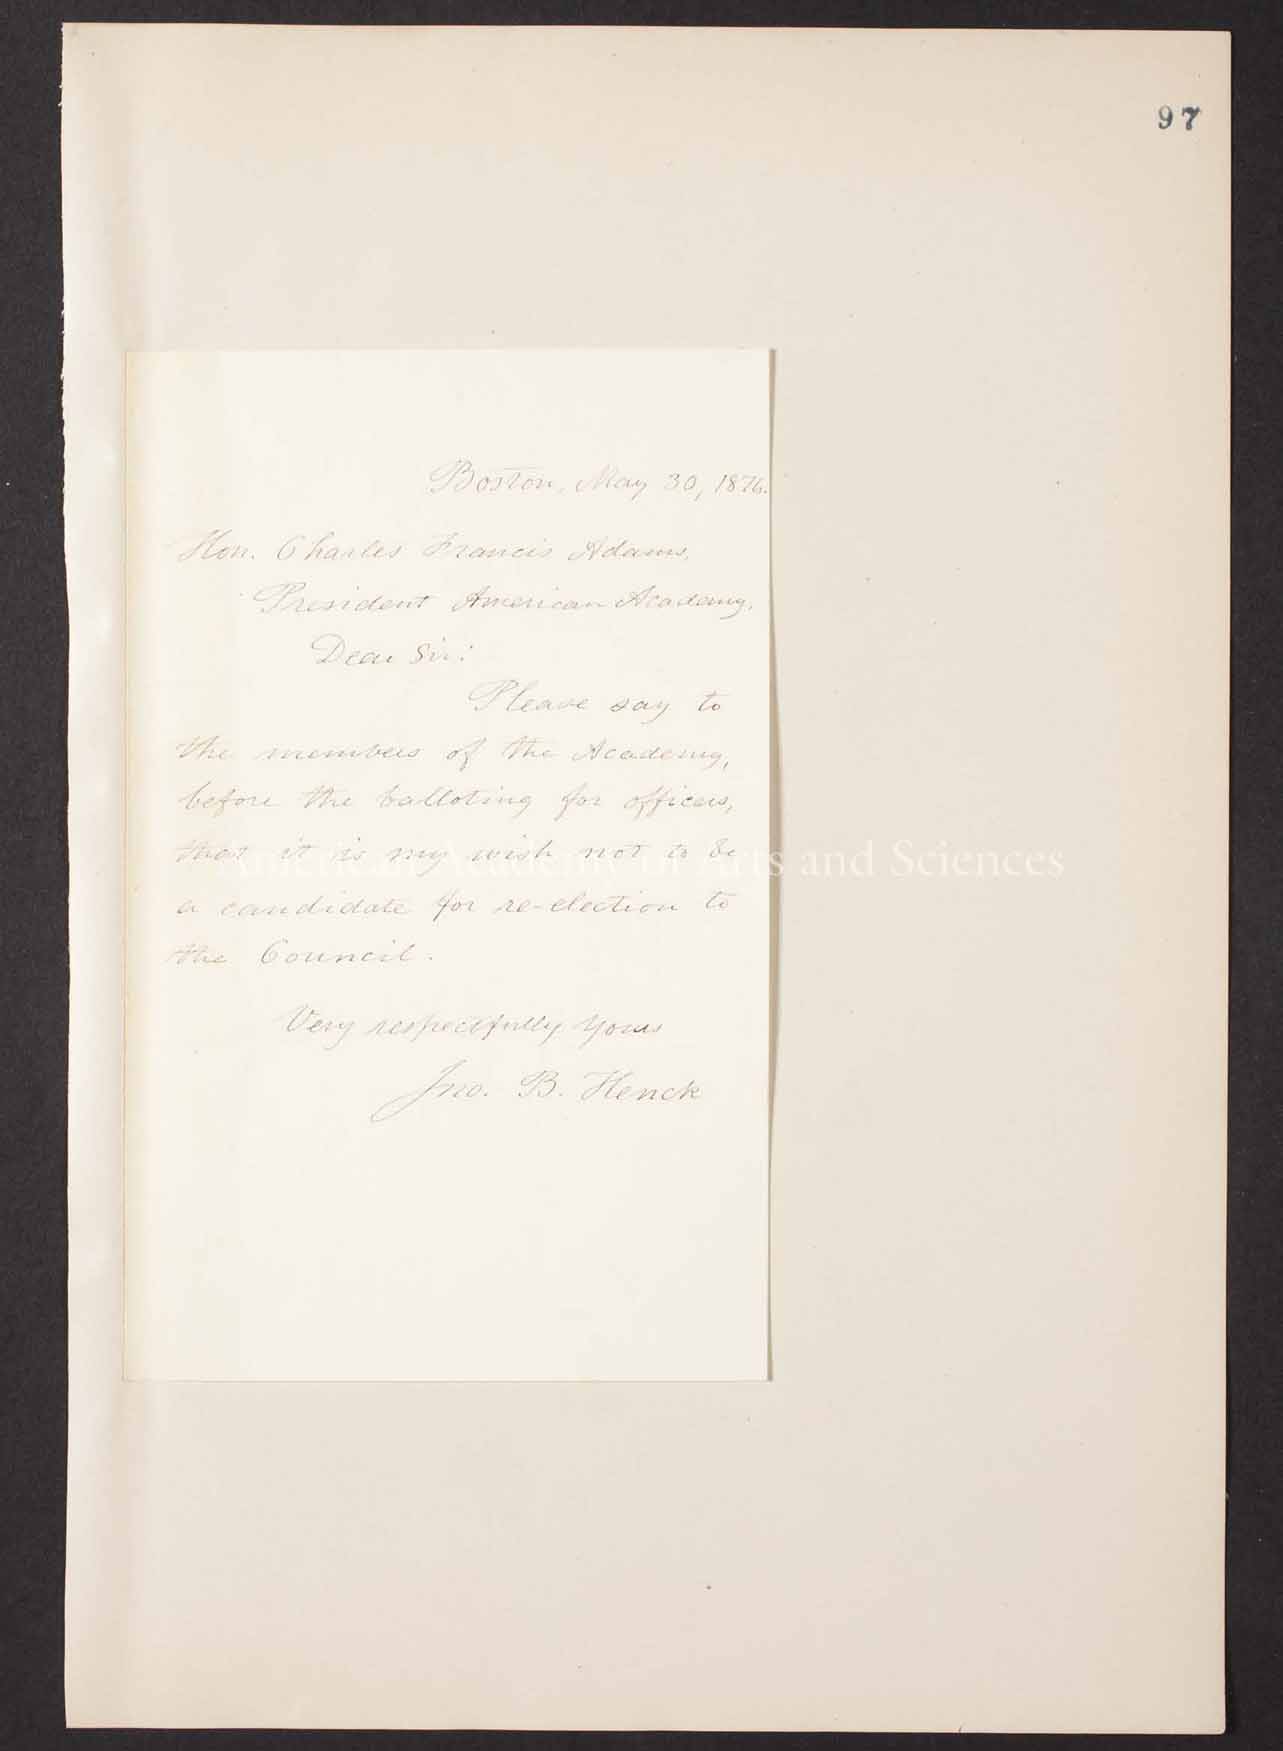 97
Boston, May 30, 1876.
Hon. Charles Francis Adams,
President American Academy.
Dear Sir:
Please say to
the members of the Academy,
before the balloting for officers,
that it is my wish not to be
a candidate for re-election to
the Council.
Very respectfully Yours
Jno. B. Henck
American Academy of Arts and Sciences